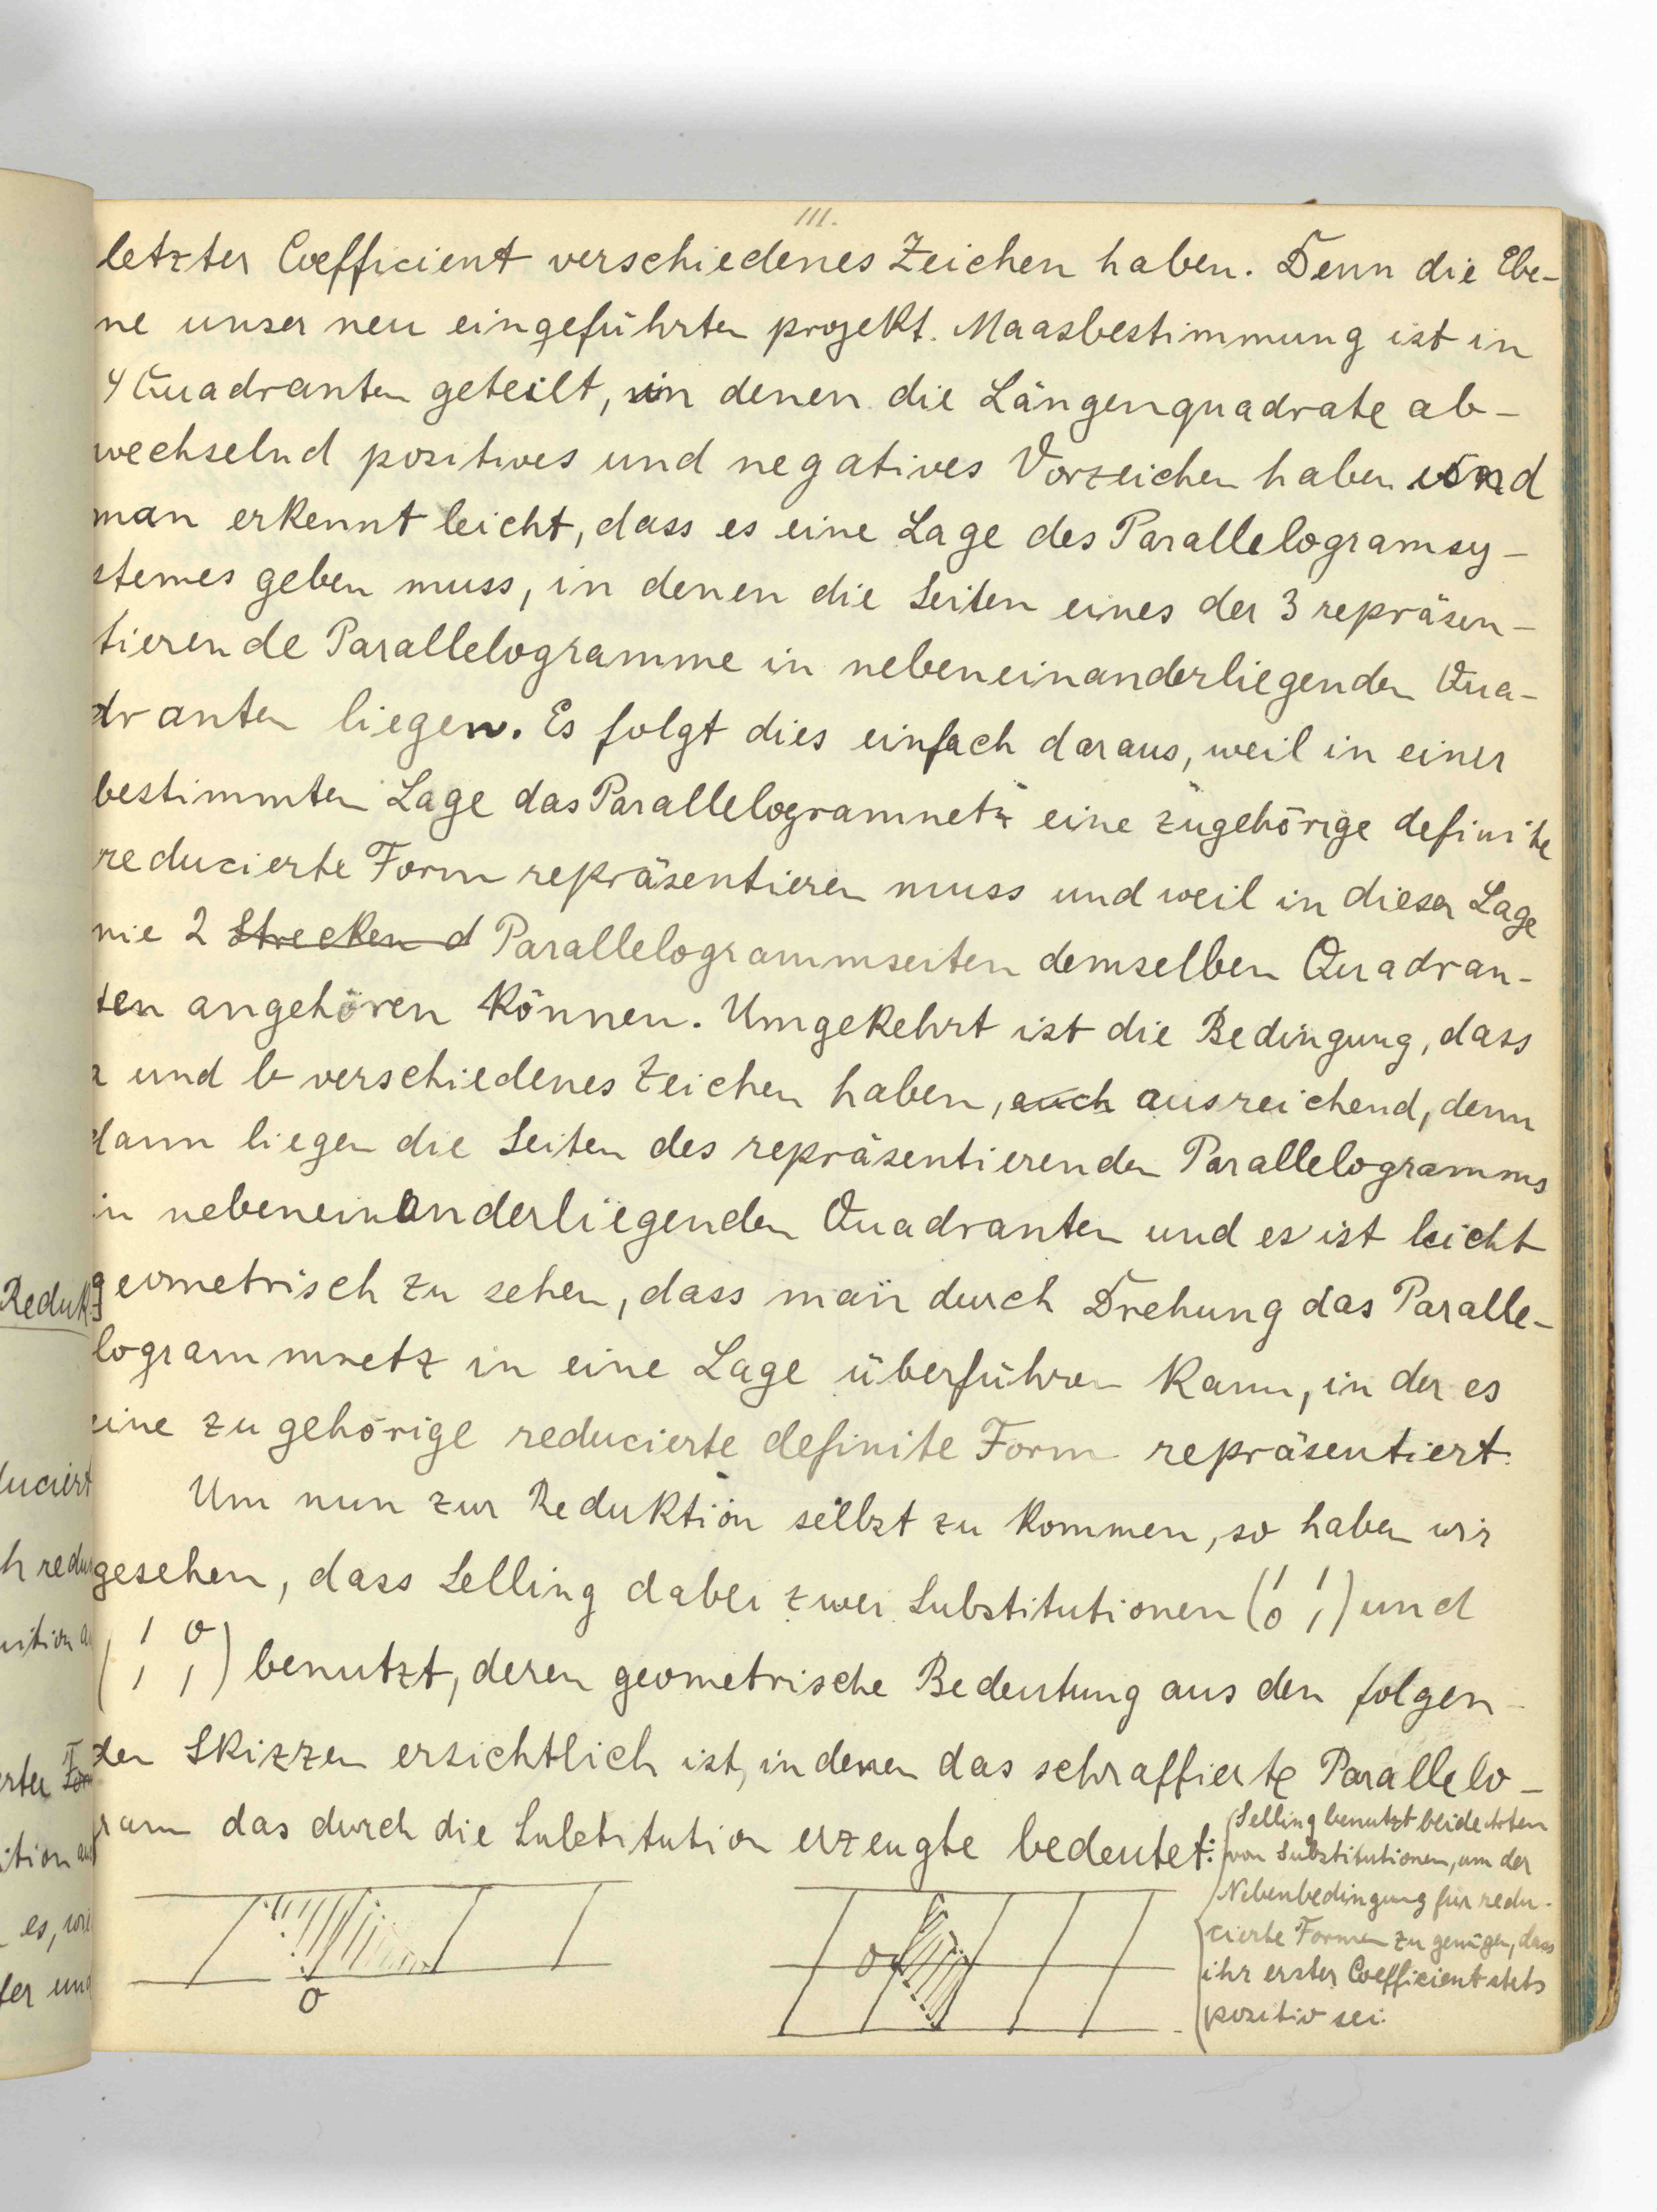 111.
letzter Coefficient verschiedenes Zeichen haben. Denn die Ebe-
ne unser neu eingeführten projekt. Maasbestimmung ist in
4 Quadranten geteilt, in denen die Längenquadrate ab-
wechselnd positives und negatives Vorzeichen haben und
man erkennt leicht, dass es eine Lage des Parallelogramsy-
stemes geben muss, in denen die Seiten eines der 3 repräsen-
tierende Parallelogramme in nebeneinanderliegenden Qua-
dranten liegen. Es folgt dies einfach daraus, weil in einer
bestimmten Lage das Parallelogramnetz eine zugehörige definite
reducierte Form repräsentieren muss und weil in dieser Lage
nie 2 Strecken d Parallelogrammseiten demselben Quadran-
ten angehören können. Umgekehrt ist die Bedingung, dass
a und b verschiedenes Zeichen haben, auch ausreichend, denn
dann liegen die Seiten des repräsentierenden Parallelogramms
in nebeneinanderliegenden Quadranten und es ist leicht
geometrisch zu sehen, dass man durch Drehung das Paralle-
logrammnetz in eine Lage überführen kann, in der es
eine zugehörige reducierte definite Form repräsentiert.
Um nun zur Reduktion selbst zu kommen, so haben wir
gesehen, dass Selling dabei zwei Substitutionen (1 1
0 1) und
(1 0
1 1) benutzt, deren geometrische Bedeutung aus den folgen-
den Skizzen ersichtlich ist, in denen das schraffierte Parallelo-
gram das durch die Substitution erzeugte bedeutet:
Selling benutzt beide Arten
von Substitutionen, um der
Nebenbedingung für redu-
cierte Formen zu genügen, dass
ihr erster Coefficient stets
positiv sei.
O
O
Reduk
duciert
h redu
es, wie